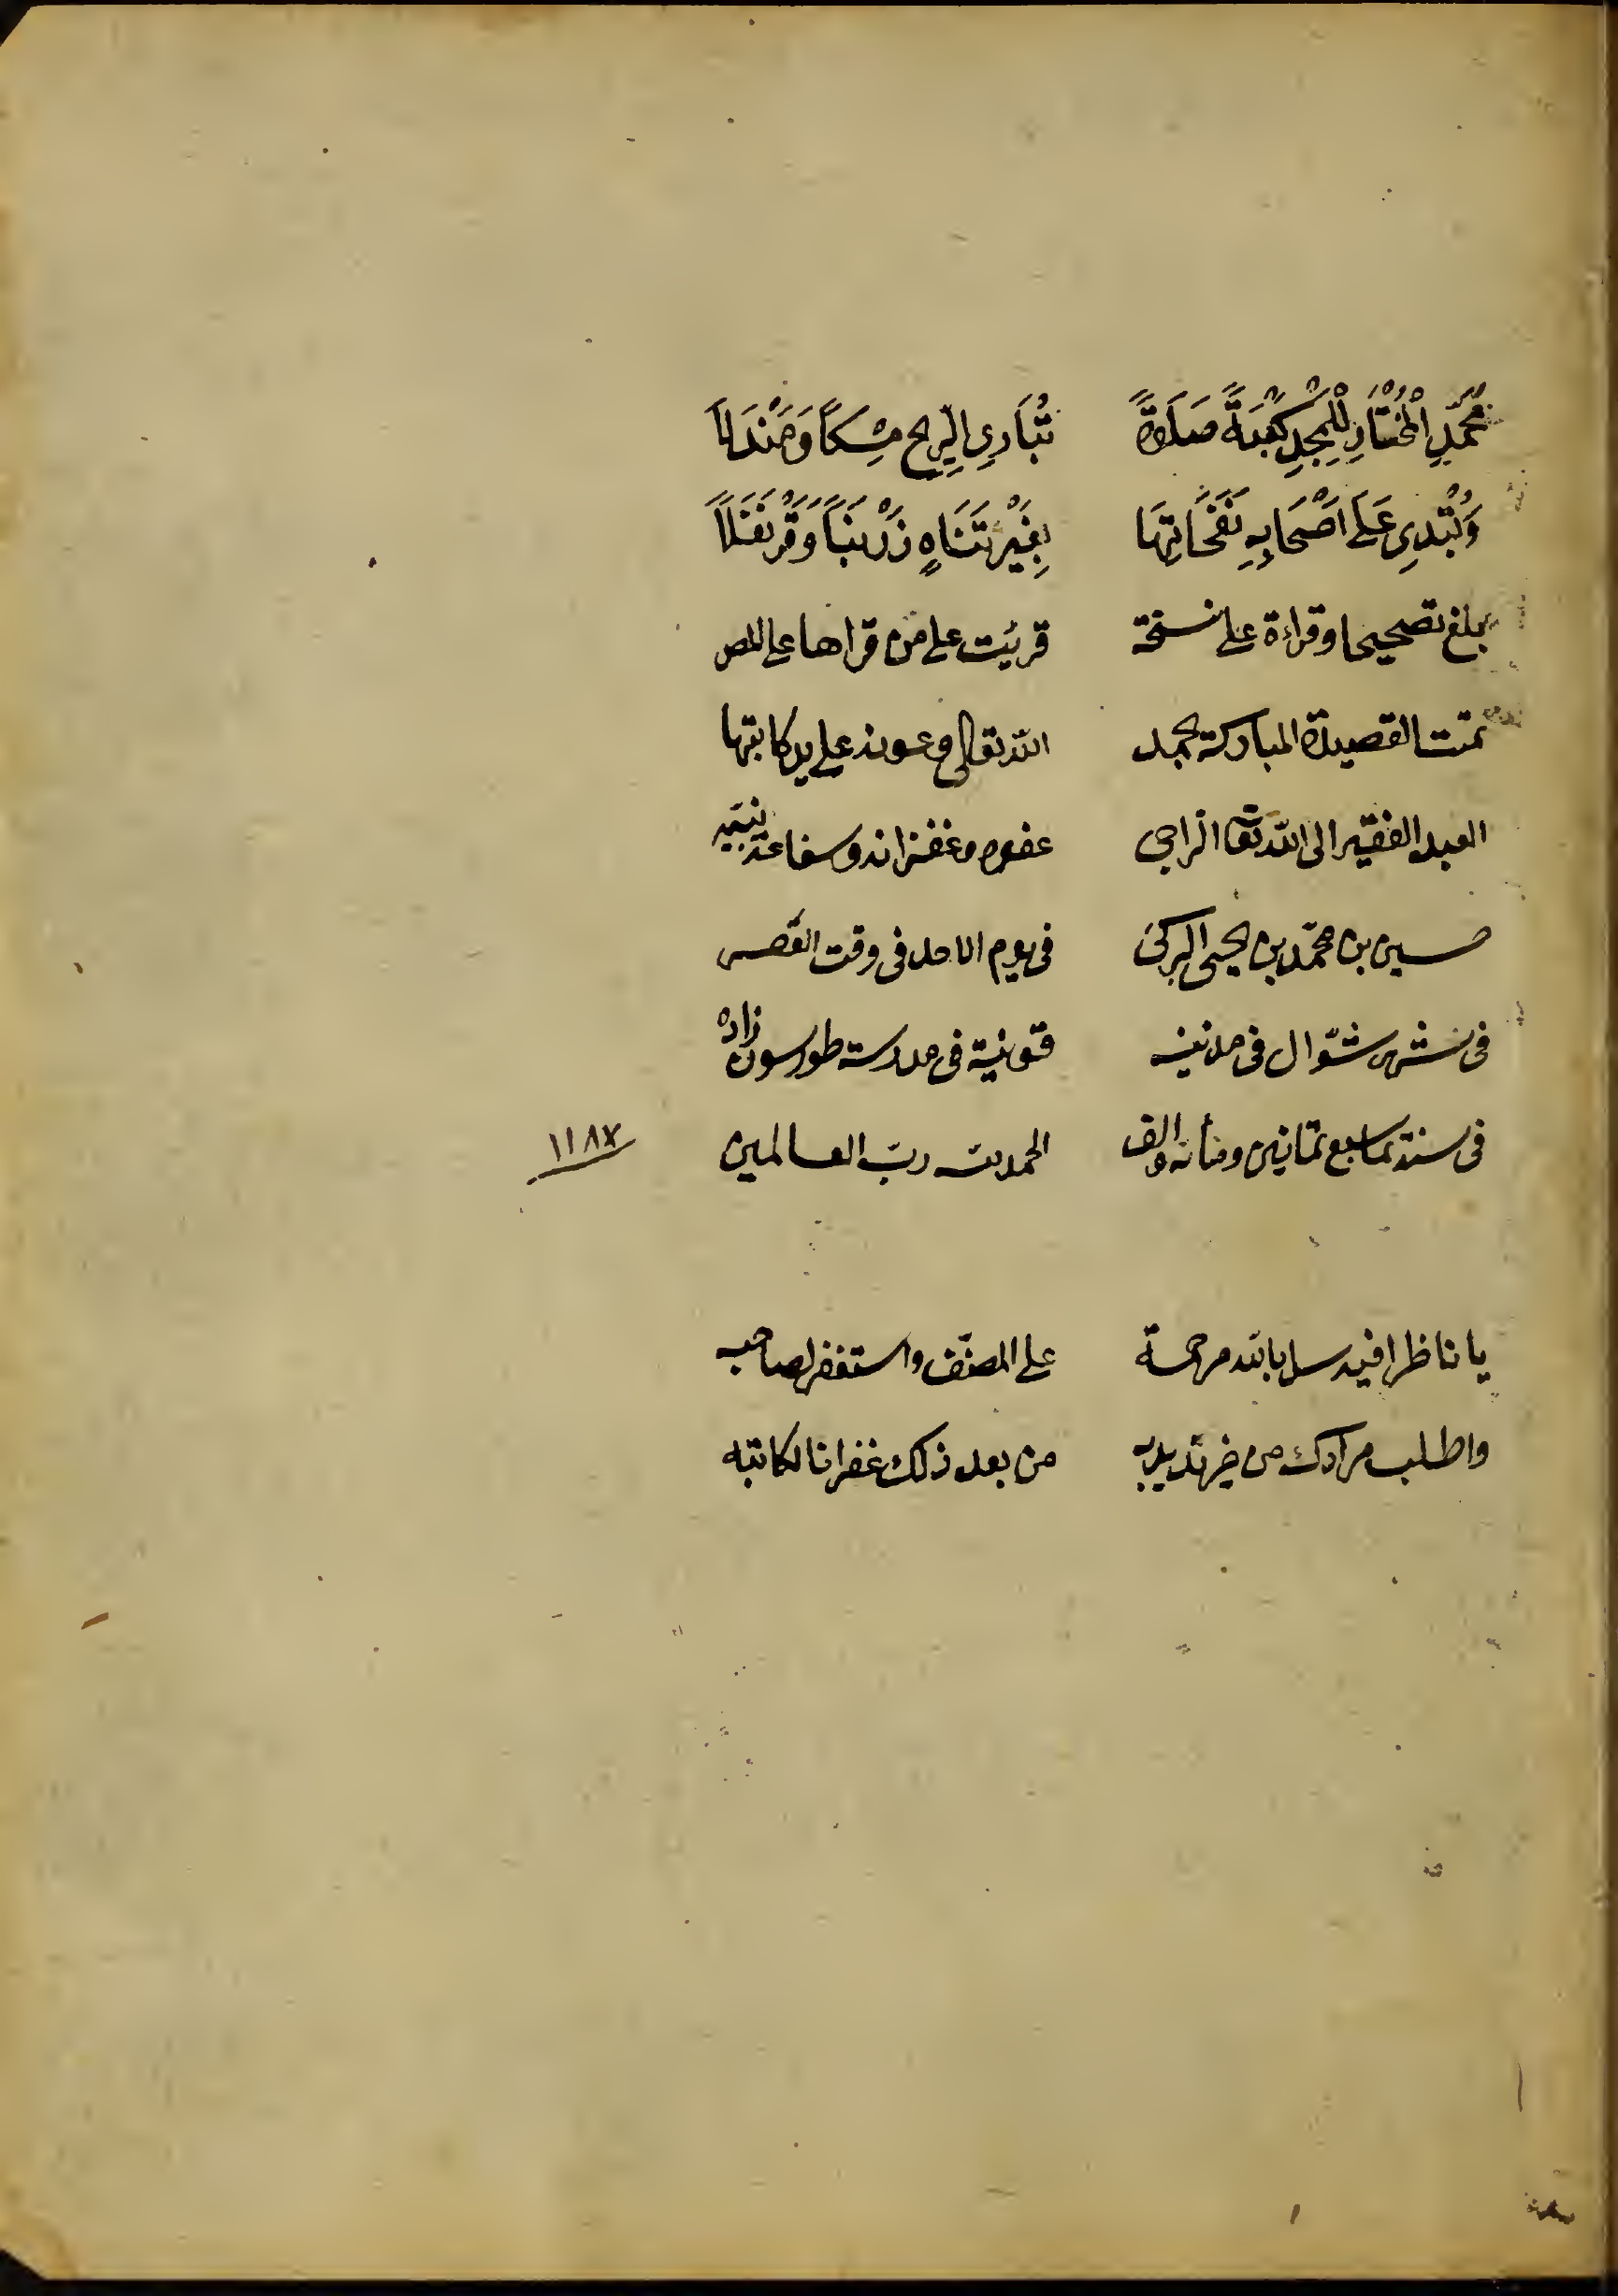 مُحَمَّدٍ الْمُخْتَارِ لِلْمَجْدِ كَعْبَةً صَلَاةً تُبَارِي الرِّيحَ مِسْكًا وَمَنْدَلَا
وَتُبْدِي عَلَى اَصْحَابِهِ نَفَحَاتِهَا بِغَيْرِ تَنَاهٍ زَرْنَبًا وَقَرَنْفَلَا
بلغ تصحيحا وقراءة على نسخة قرئت على من قراها على المص
تمت القصيدة المباركة بحمد الله تعالى وعونه على يد كاتبها
العبد الفقير الى الله تعا الراجى عفوه وغفرانه وشفاعة نبيه
حسين بن محمّد بن يحيى البركى فى يوم الاحد فى وقت العصر
فى شهر شوّال فى مدينه قونية فى مدرسة طورسون زاده
فى سنة سبع ثمانين ومأئة والف الحمد لله ربّ العالمين ١١٨٧
يا ناظرا فيه سل بالله مرحمة على المصنّف واستغفر لصاحبه
واطلب مرادك من خير تريد به من بعد ذلك غفرانا لكاتبه